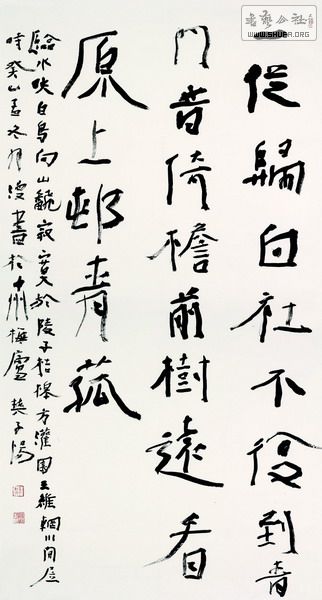 书艺公社
WWW.SHUFA.ORG
一從歸白社不復到青
門旹倚檐前樹遠看
原上邨青菰
臨水映白鳥向山翻寂寞於陵子桔槔方灌園王維輞川閒居
時癸巳孟冬月 書於中州梅廬 樊子